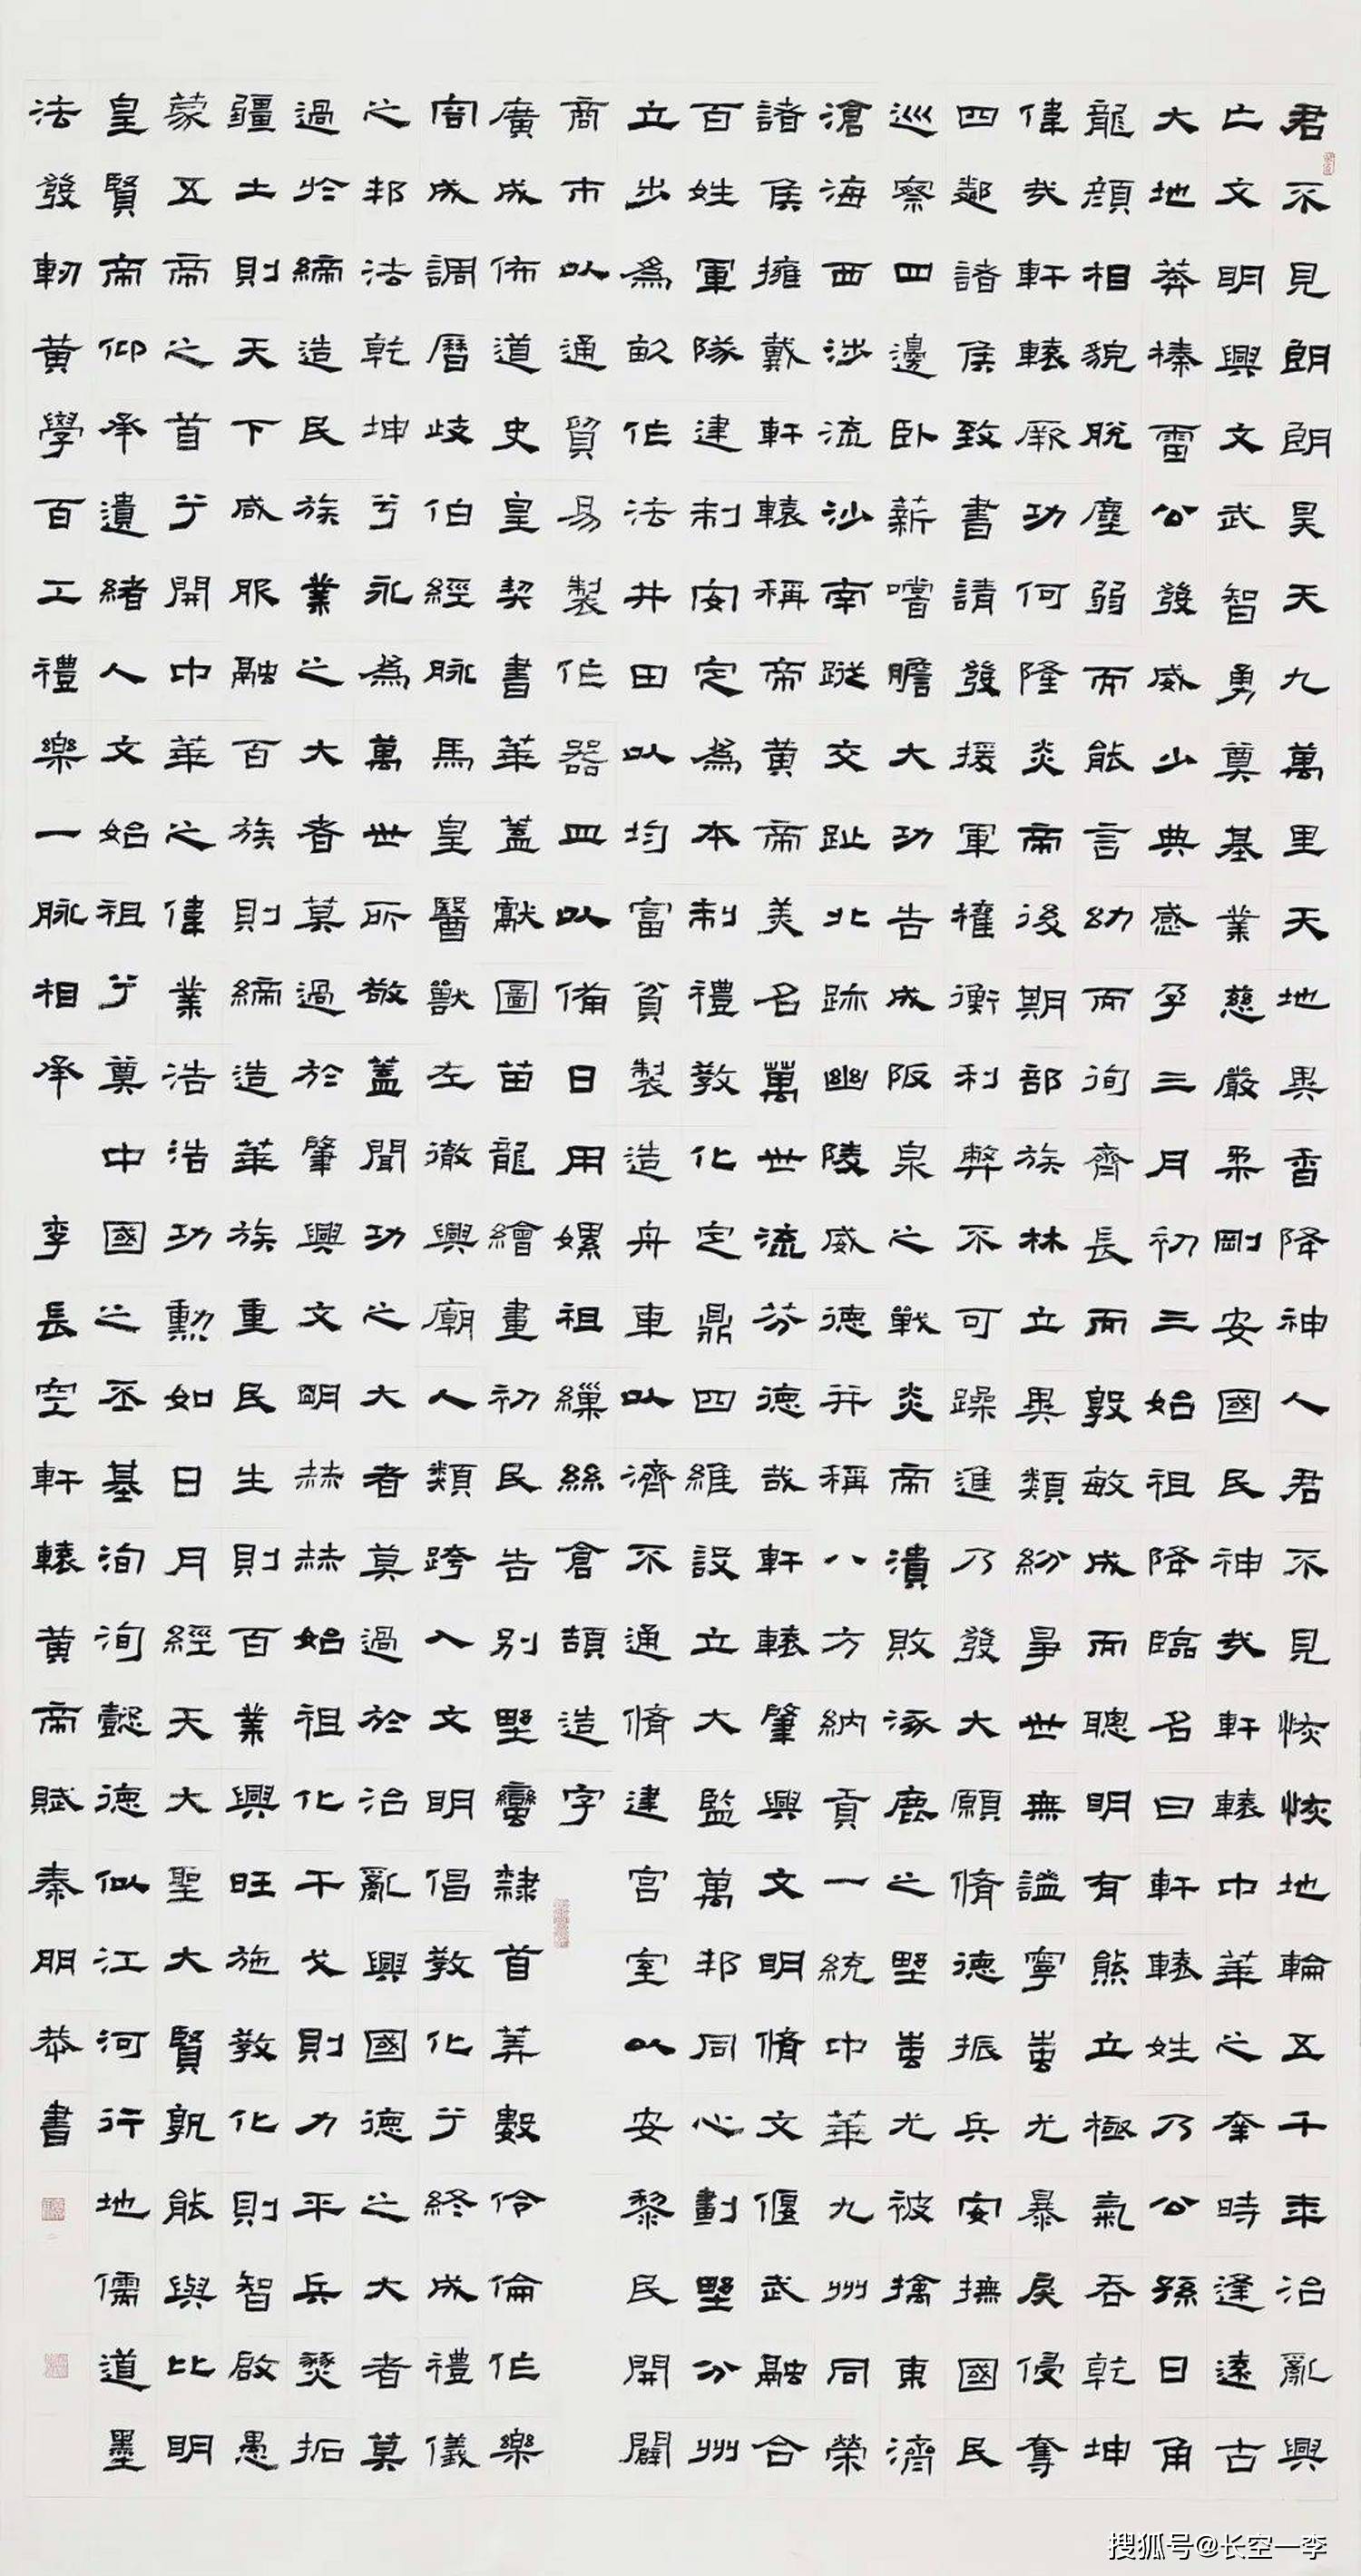 君不見朗朗昊天九萬里天地異香降神人君不見恢恢地輪五千年治亂興
亡文明興文武智勇奠基業慈嚴柔剛安國民神哉軒轅中華之奎時逢遠古
大地莽榛雷公發威少典感孕三月初三始祖降臨名曰軒轅姓乃公孫日角
龍顏相貌脫塵弱而能言幼而徇齊長而敦敏成而聰明有熊立極氣吞乾坤
偉哉軒轅厥功何隆炎帝後期部族林立異類紛爭世無謐寧蚩尤暴戾侵奪
四鄰諸侯致書請發援軍權衡利弊不可躁進乃發大願脩德振兵安撫國民
巡察四邊臥薪嚐膽大功告成阪泉之戰炎帝潰敗涿鹿之野蚩尤被擒東濟
滄海西涉流沙南蹤交趾北跡幽陵威德并稱八方納貢一統中華九州同榮
諸侯擁戴軒轅稱帝黃帝美名萬世流芬德哉軒轅肇興文明脩文偃武融合
百姓軍隊建制安定為本制禮教化定鼎四維設立大監萬邦同心劃野分州
立步為畝作法井田以均富貧製造舟車以濟不通脩建宮室以安黎民開闢
商市以通貿易製作器皿以備日用嫘祖繅絲倉頡造字
廣成佈道史皇契書華蓋獻圖苗龍繪畫初民告別野蠻隸首算數伶倫作樂
容成調曆歧伯經脈馬皇醫獸左徹興廟人類跨入文明倡教化于終成禮儀
之邦法乾坤兮永為萬世所敬蓋聞功之大者莫過於治亂興國德之大者莫
過於締造民族業之大者莫過於肇興文明赫赫始祖化干戈則力平兵燹拓
疆土則天下咸服融百族則締造華族重民生則百業興旺施教化則智啟愚
蒙五帝之首于開中華之偉業浩浩功勳如日月經天大聖大賢孰能與比明
皇賢帝仰承遺緒人文始祖于奠中國之丕基洵洵懿德似江河行地儒道墨
法發軔黃學百工禮樂一脈相承 李長空軒轅黃帝賦秦朋恭書
搜狐号@长空一李